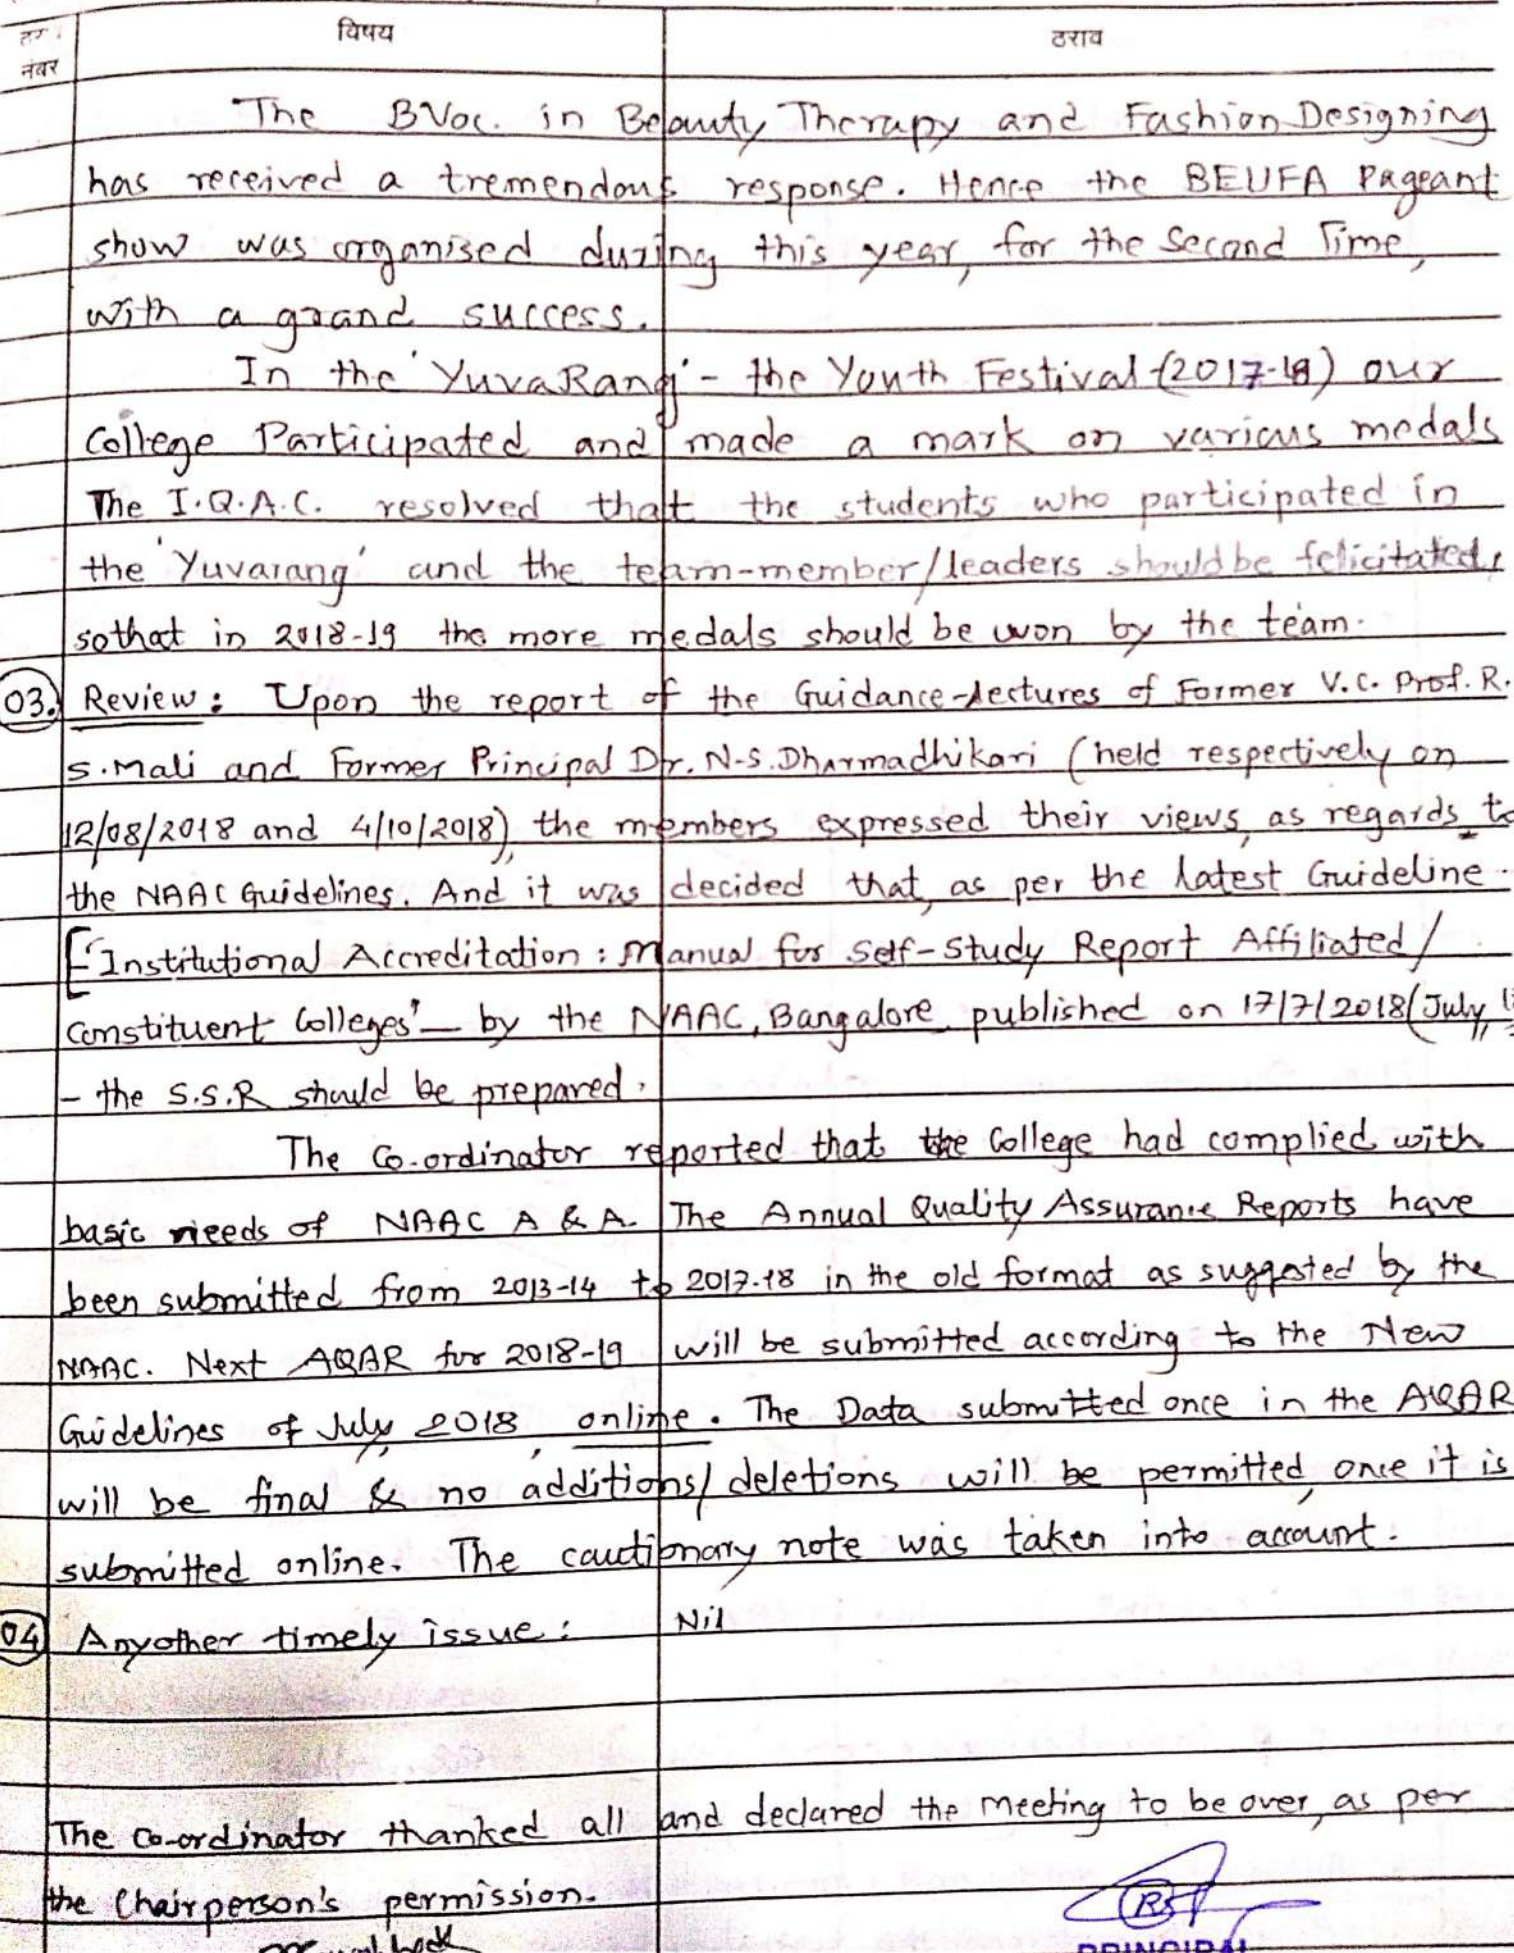 विषय
ठराव
नंबर
The BVoc. in Beauty Therapy and Fashion Designing
has received a tremendous response. Hence the BEUFA Pageant
show was organised during this year, for the Second Time,
with a grand success.
In the 'YuvaRang' - the Youth Festival (2017-18) our
College Participated and made a mark on various medals
The I.Q.A.C. resolved that the students who participated in
the 'Yuvarang' and the team-member/leaders should be felicitated,
sothat in 2018-19 the more medals should be won by the team.
03. Review: Upon the report of the Guidance-Lectures of Former V.C. Prof. R.
S. Mali and Former Principal Dr. N.S. Dharmadhikari (held respectively on
12/08/2018 and 4/10/2018), the members expressed their views, as regards to
the NAAC Guidelines. And it was decided that, as per the Latest Guideline.
['Institutional Accreditation: Manual for Self-Study Report Affiliated/
Constituent Colleges' - by the NAAC, Bangalore published on 17/7/2018 (July,
- the S.S.R should be prepared.
The Co-ordinator reported that the College had complied with
basic needs of NAAC A & A. The Annual Quality Assurance Reports have
been submitted from 2013-14 to 2017-18 in the old format as suggested by the
NAAC. Next AQAR for 2018-19 will be submitted according to the New
Guidelines of July, 2018, online. The Data submitted once in the AQAR
will be final & no additions/deletions will be permitted, once it is
submitted online. The cautionary note was taken into account.
04 Anyother timely issue: Nil
The Co-ordinator thanked all and declared the meeting to be over, as per
the Chairperson's permission.
PRINCIPAL